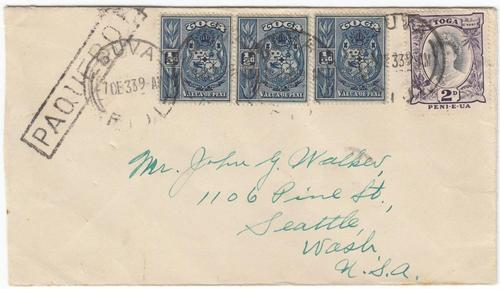 PAQUEBOT
SUVA
7 DE 33 9-AM
FIJI
TOGA
½d
VAEUA OE PENI
TOGA
½d
VAEUA OE PENI
TOGA
½d
VAEUA OE PENI
TOGA
2D
PENI-E-UA
Mr. John G. Walker,
1106 Pine St.,
Seattle,
Wash.
U.S.A.